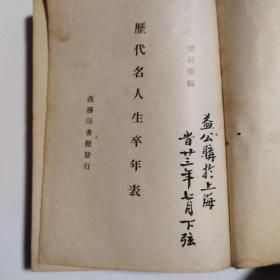 益公購於上海
旹廿三年七月下弦
梁廷燦編
歷代名人生卒年表
商務印書館發行